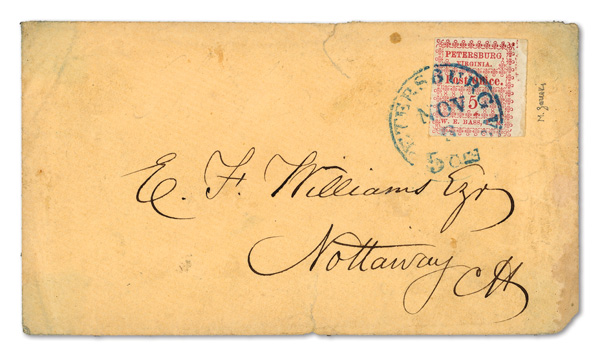 PETERSBURG,
VIRGINIA.
Post Office.
5
W. E. BASS,
PETERSBURG VA
NOV
5 cts
E. F. Williams Esqr
Nottaway CH